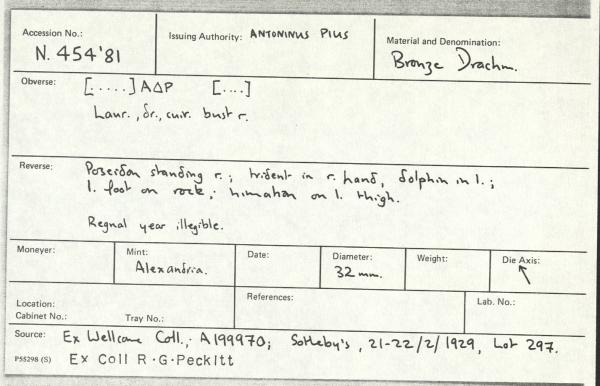 Accession No.:
N. 454'81
Issuing Authority: ANTONINUS PIUS
Material and Denomination:
Bronze Drachm.
Obverse: [.....] ΑΔΡ [....]
Laur., dr., cuir. bust r.
Reverse: Poseidon standing r.; trident in r. hand, dolphin in l.;
l. foot on rock; himation on l. thigh.
Regnal year illegible.
Moneyer:
Mint:
Alexandria.
Date:
Diameter:
32 mm.
Weight:
Die Axis:
↖
Location:
Cabinet No.: Tray No.:
References:
Lab. No.:
Source: Ex Wellcome Coll., A199970; Sotheby's, 21-22/2/1929, Lot 297.
P55298 (S) Ex Coll R·G·Peckitt